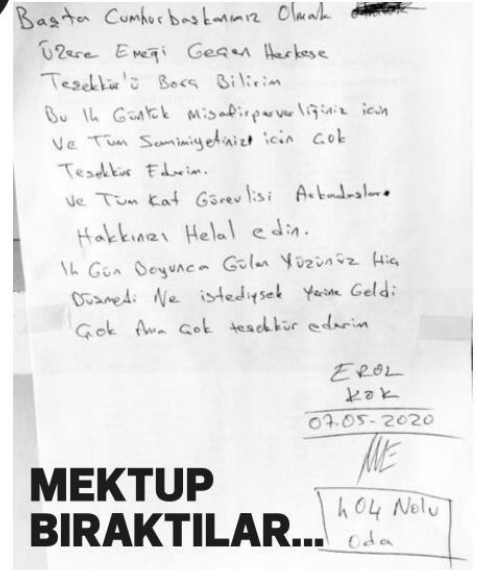 Başta Cumhurbaşkanımız Olmak
Üzere Emeği Geçen Herkese
Teşekkür'ü Borç Bilirim
Bu 14 Günlük Misafirperverliğiniz için
Ve Tüm Samimiyetiniz için Çok
Teşekkür Ederim.
Ve Tüm Kat Görevlisi Arkadaşlar.
Hakkınızı Helal edin.
14 Gün Boyunca Gülen Yüzünüz Hiç
Düşmedi Ne istediysek Yerine Geldi
Çok Ama Çok teşekkür ederim
EROL
KÖK
07-05-2020
MEKTUP
BIRAKTILAR...
404 Nolu
Oda